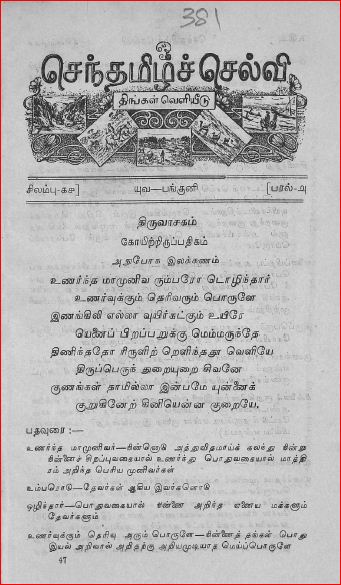 381
செந்தமிழ்ச் செல்வி
திங்கள் வெளியீடு
சிலம்பு-கச] யுவ—பங்குனி [பரல்-அ
திருவாசகம்
கோயிற்றிருப்பதிகம்
அநுபோக இலக்கணம்
உணர்ந்த மாமுனிவ ரும்பரோ டொழிந்தார்
உணர்வுக்கும் தெரிவரும் பொருளே
இணங்கிலி எல்லா வுயிர்கட்கும் உயிரே
யெனைப் பிறப்பறுக்கு மெம்மருந்தே
திணிந்ததோ ரிருளிற் றெளிந்ததூ வெளியே
திருப்பெருந் துறையுறை சிவனே
குணங்கள் தாமில்லா இன்பமே யுன்னைக்
குறுகினேற் கினியென்ன குறையே.
பதவுரை :—
உணர்ந்த மாமுனிவர்—நின்னொடு அத்துவிதமாய்க் கலந்து நின்று
நின்னைச் சிறப்புவகையால் உணர்ந்து பொதுவகையால் மாத்தி
ரம் அறிந்த பெரிய முனிவர்கள்
உம்பரொடு—தேவர்கள் ஆகிய இவர்களொடு
ஒழிந்தார்—பொதுவகையால் நின்னை அறிந்த ஏனைய மக்களும்
தேவர்களும்
உணர்வுக்கும் தெரிவு அரும் பொருளே—நின்னைத் தங்கள் பொது
இயல் அறிவால் அறிதற்கு அறியமுடியாத மெய்ப்பொருளே
47